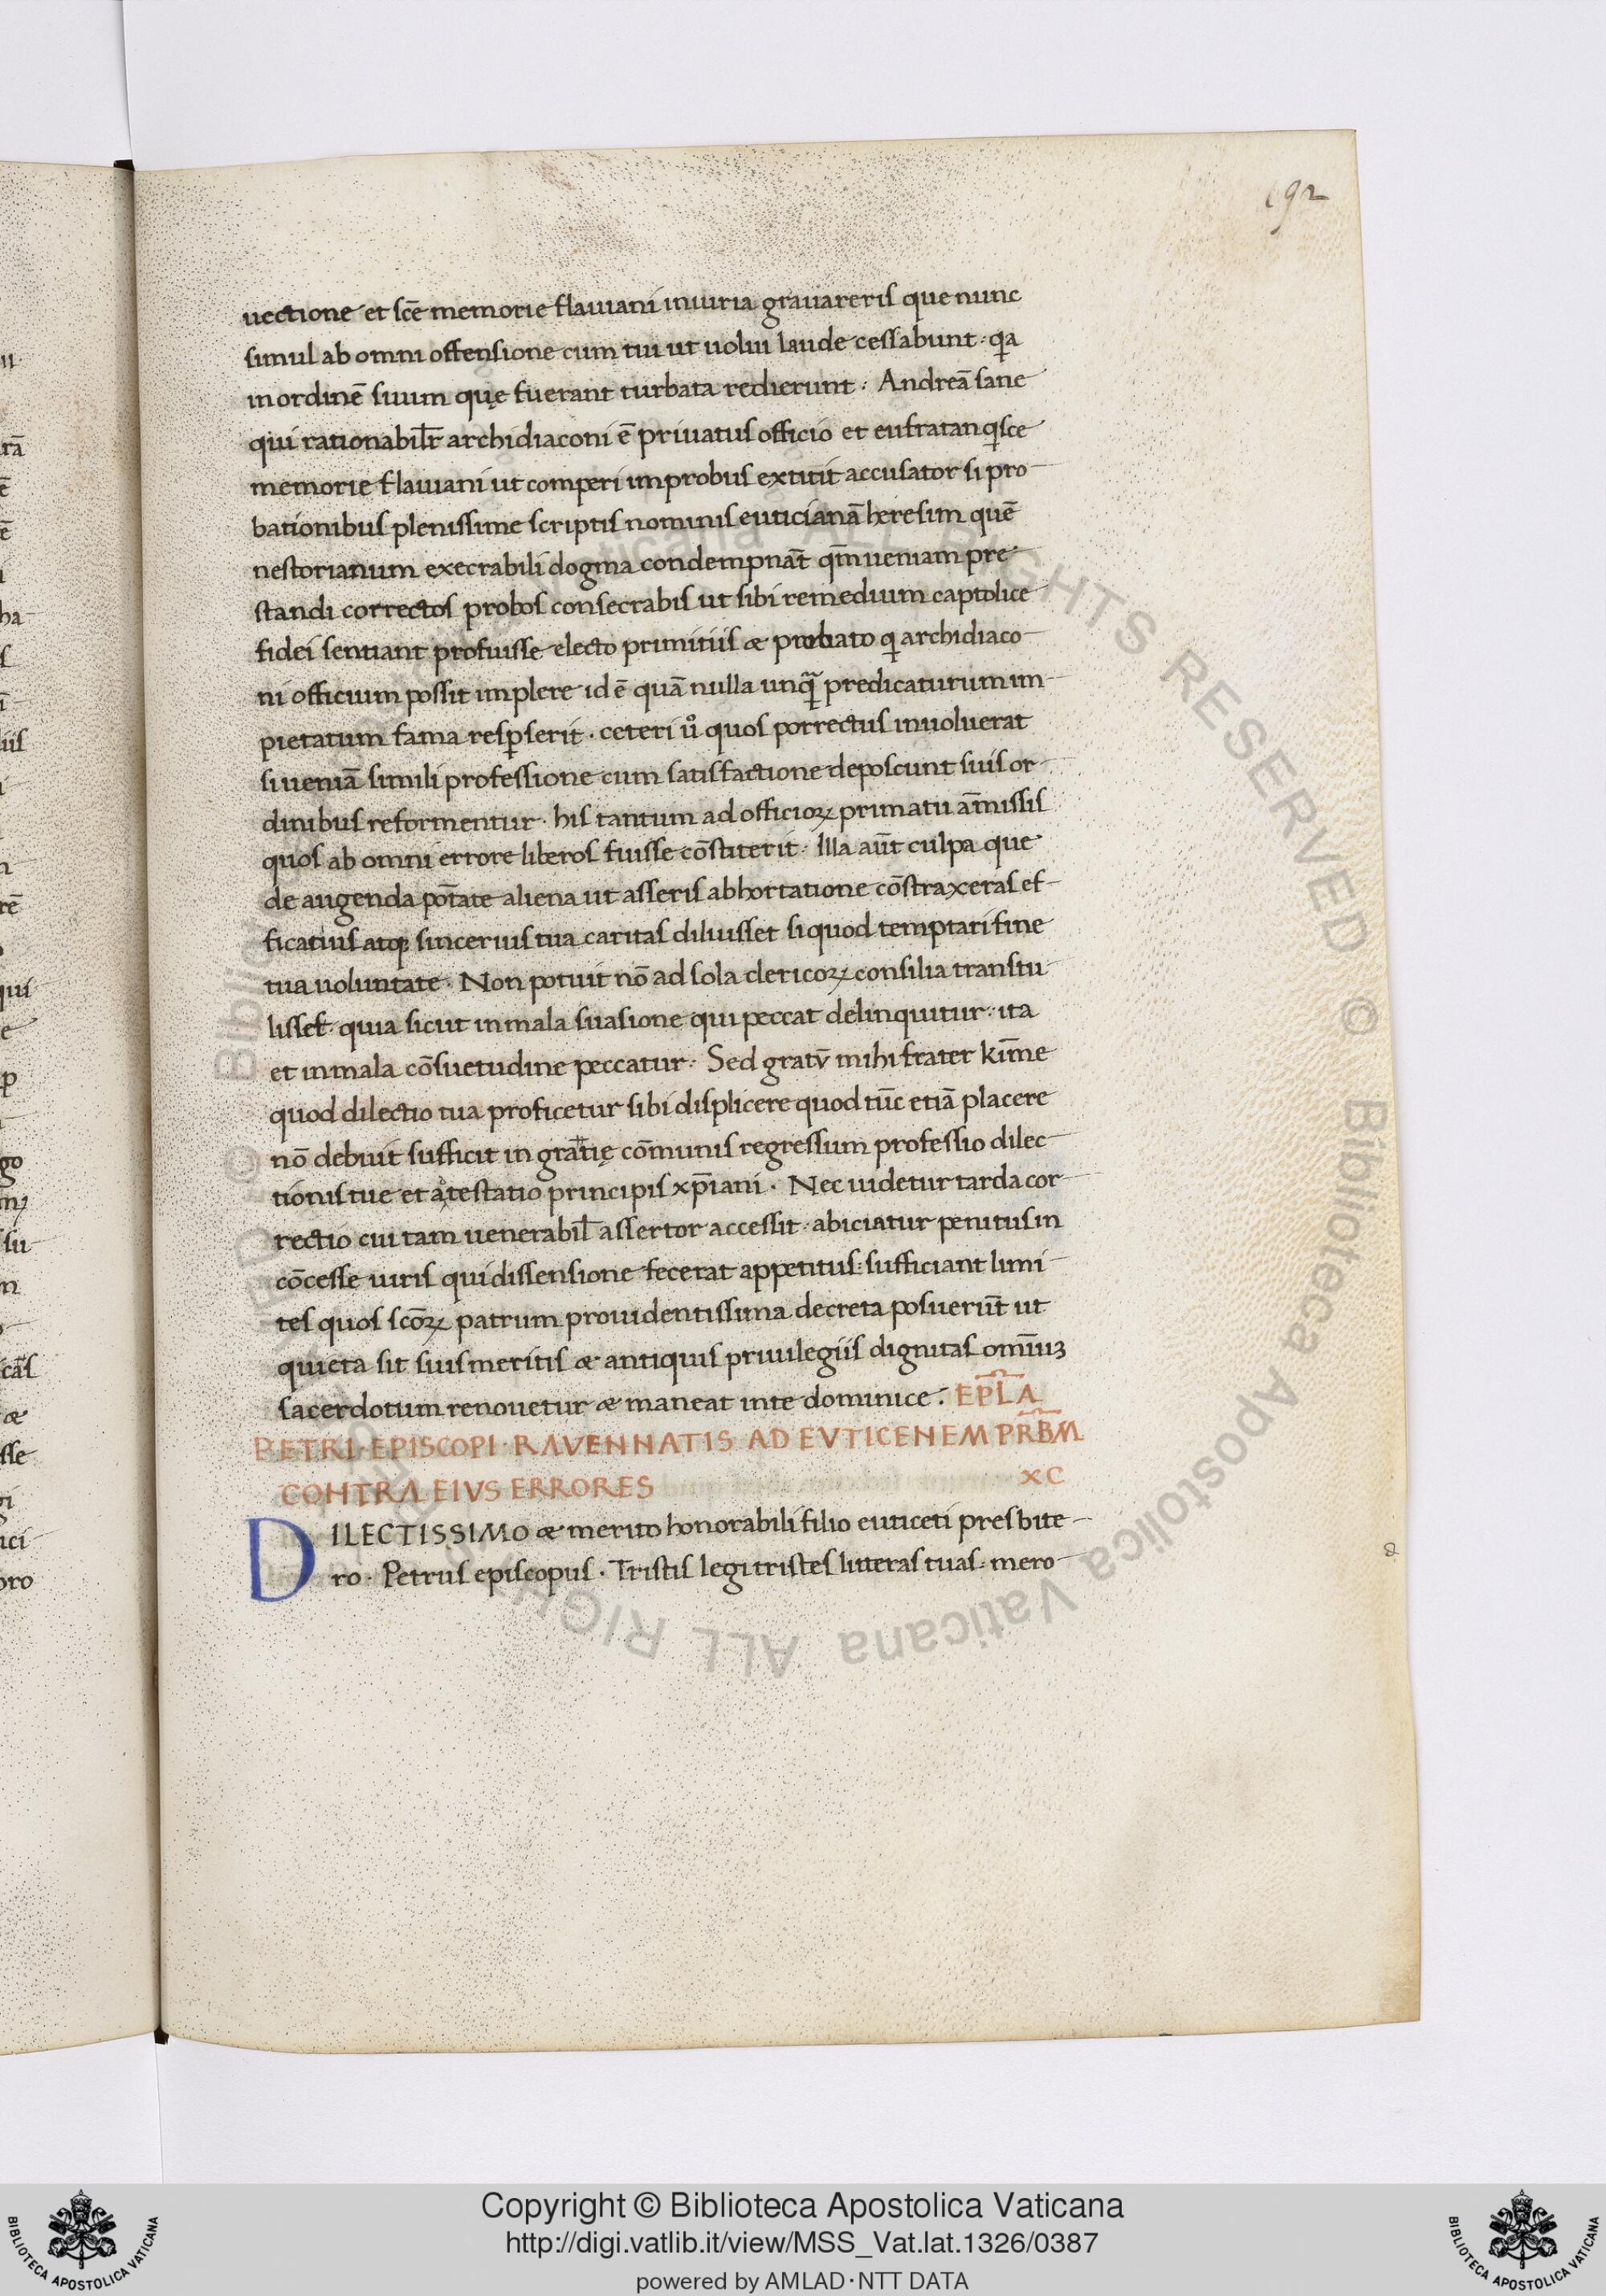 192
uectione et sc̄e memorie flauiani iniuria grauareris que nunc
simul ab omni offensione cum tui ut uolui laude cessabunt · qꝛa
in ordinē suum quę fuerant turbata redierunt · Andreā sane
qui rationabilr̄ archidiaconi ē priuatus officio et eufratan qꝛ sce
memorie flauiani ut comperi improbus extitit accusator si pro
bationibus plenissime scriptis nominis euticianā heresim quē
nestorianum execrabili dogma condempnāt qm̄ ueniam pre
standi correctos probos consecrabis ut sibi remedium captolice
fidei sentiant profuisse electo primitiis æ probato qꝛ archidiaco
ni officium possit implere id ē quā nulla unqꝛ̄ predicaturum im
pietatum fama resꝑserit · ceteri ů quos porrectus inuoluerat
si ueniā simili professione cum satisfactione deposcunt suis or
dinibus reformentur · his tantum ad officioꝝ primatu am̄issis
quos ab omni errore liberos fuisse cōstiterit · Illa aūt culpa que
de augenda pōtate aliena ut asseris abhortatione cōstraxeras ef
ficatius atqꝫ sincerius tua caritas diluisset si quod temptari fine
tua uoluntate · Non potuit nō ad sola clericoꝝ consilia transtu
lisset · quia sicut in mala suasione qui peccat delinquitur · ita
et in mala cōsuetudine peccatur · Sed gratū mihi frater kim̄e
quod dilectio tua proficetur sibi displicere quod tūc etiā placere
nō debuit sufficit in gratię cōmunis regressum professio dilec
tionis tue et atestatio principis xp̄iani · Nec uidetur tarda cor
rectio cui tam uenerabil̄ assertor accessit · abiciatur penitus in
cōcesse uiris qui dissensione fecerat appetitus · sufficiant limi
tes quos scōꝝ patrum prouidentissima decreta posuerūt ut
quieta sit suis meritis æ antiquis priuilegiis dignitas om̄iuꝫ
sacerdotum renouetur æ maneat in te dominice · EPL̄A
PETRI · EPISCOPI · RAVENNATIS AD EVTICENEM PR̄BM
CONTRA EIVS ERRORES XC
DILECTISSIMO æ merito honorabili filio euticeti presbite
ro · Petrus episcopus · Tristis legi tristes litteras tuas · mero
Copyright © Biblioteca Apostolica Vaticana
http://digi.vatlib.it/view/MSS_Vat.lat.1326/0387
powered by AMLAD·NTT DATA